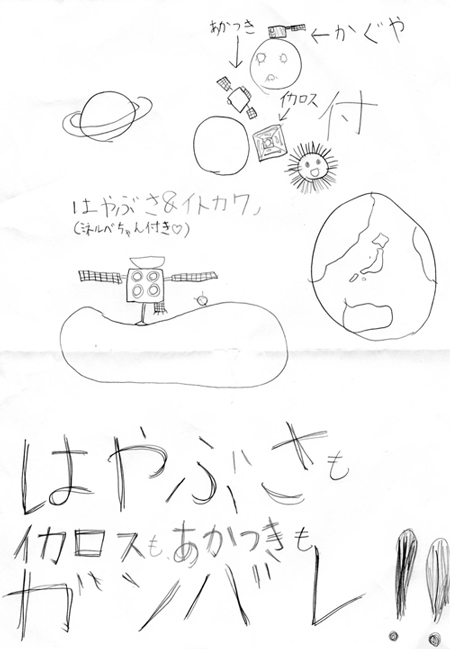 あかつき
←かぐや
イカロス
付
はやぶさ&イトカワ
(ミネルバちゃん付き♡)
はやぶさも
イカロスも、あかつきも
ガンバレ!!